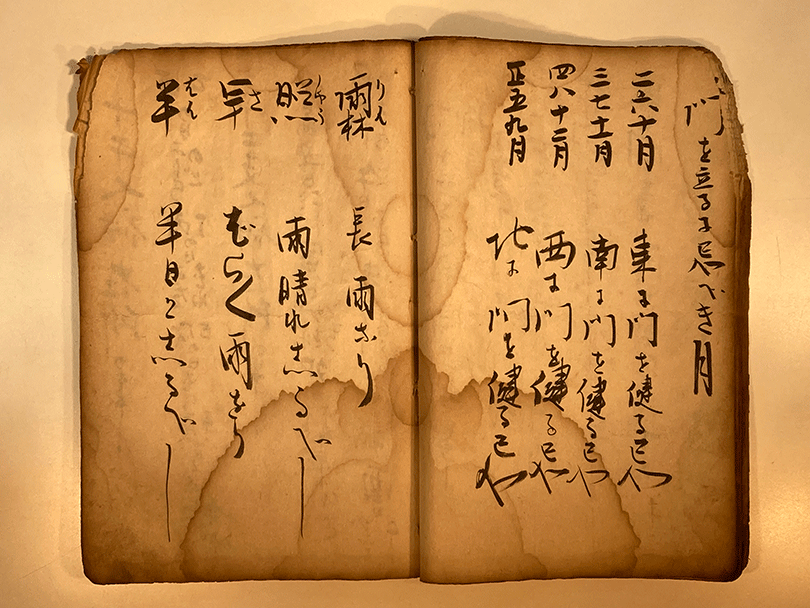 門を立るに忌べき月
二六十月 東に門を健る忌
三七十一月 南に門を健る忌
四八十二月 西に門を健る忌
正五九月 北に門を健る忌
霖 りん 長雨なり
照 しやう 雨晴れしるべし
雨なり
半 はん 半日としるべし